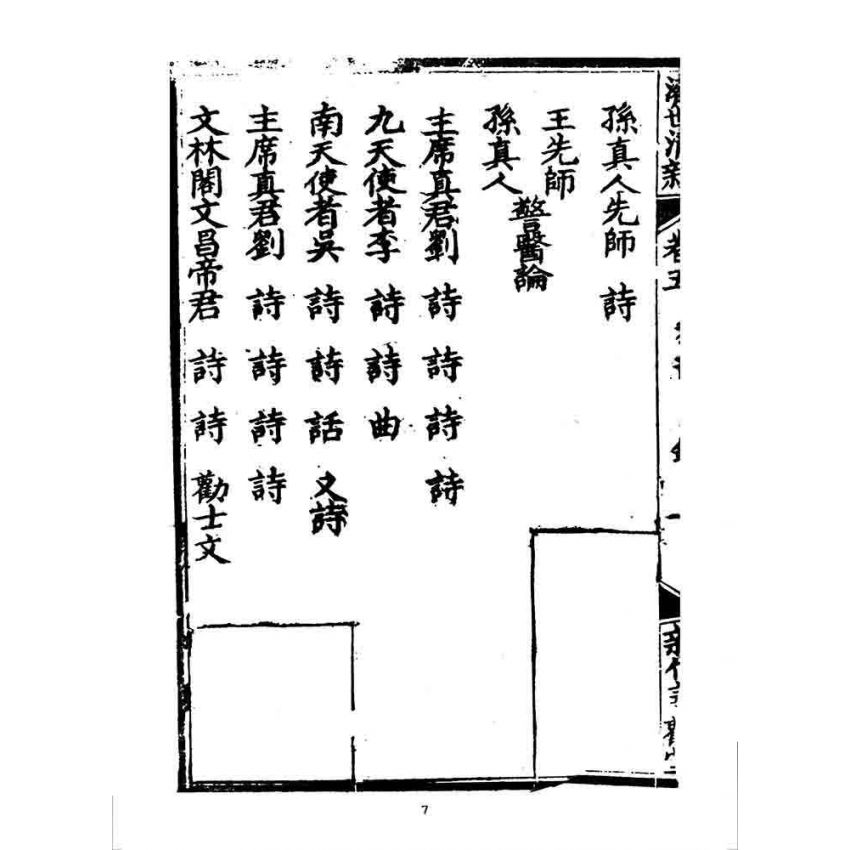 孫真人先師　詩
王先師
孫真人
警醫論
主席真君劉　詩　詩　詩　詩
九天使者李　詩　詩　曲
南天使者吳　詩　詩　話　又詩
主席真君劉　詩　詩　詩　詩
文林閣文昌帝君　詩　詩　勸士文
卷五
7